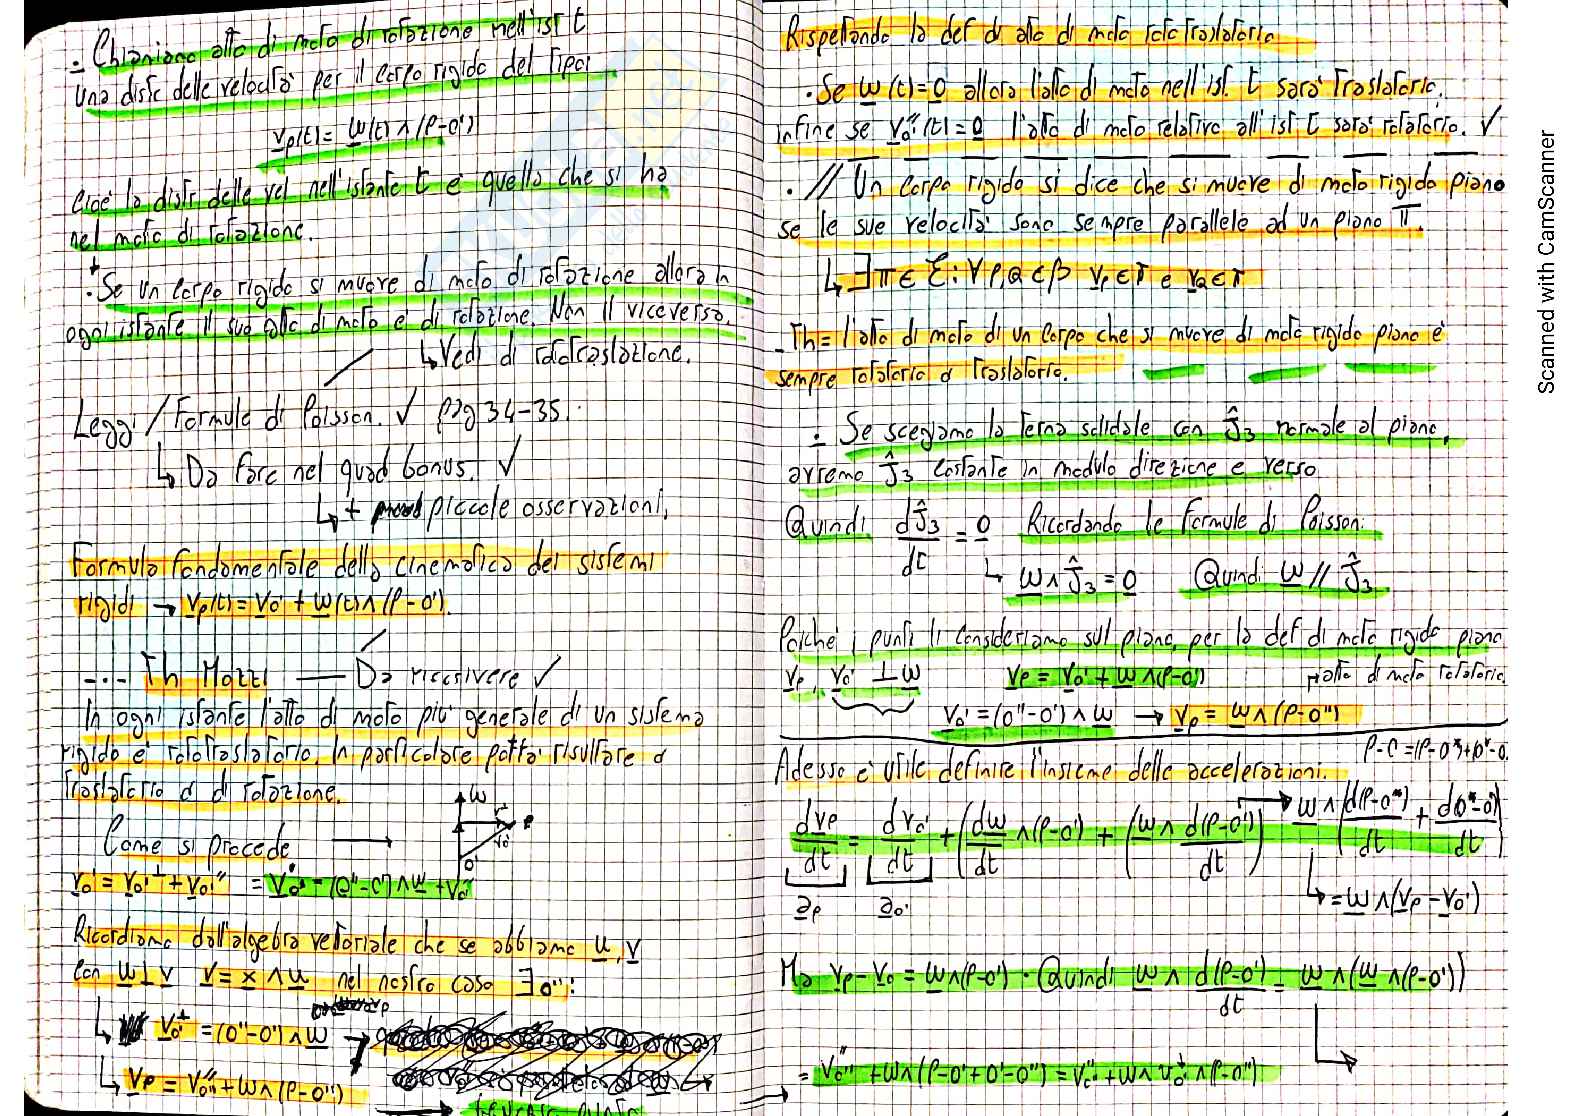 - Chiamiamo atto di moto di rotazione nell'ist t
una distr delle velocità per il corpo rigido del tipo:
v_p(t) = ω(t) ∧ (P-O')
Cioè la distr delle vel nell'istante t è quella che si ha
nel moto di rotazione.
· Se un corpo rigido si muove di moto di rotazione allora in
ogni istante il suo atto di moto è di rotazione. Non il viceversa.
↳ Vedi di rototraslazione.
Leggi / Formule di Poisson. ✓ pag 34-35.
↳ Da fare nel quad bonus. ✓
↳ + piccole osservazioni.
Formula fondamentale della cinematica dei sistemi
rigidi → v_p(t) = v_o' + ω(t) ∧ (P-O').
-·- Th Mozzi — Da riscrivere ✓
In ogni istante l'atto di moto più generale di un sistema
rigido è rototraslatorio. In particolare potrà risultare o
traslatorio o di rotazione.
Come si procede →
ω
P
O'
v_o' = v_o'^⊥ + v_o'^// = v_o' = (O''-O') ∧ ω + v_o'^//
Ricordiamo dall'algebra vettoriale che se abbiamo u, v
con u ⊥ v v = x ∧ u nel nostro caso ∃ O'':
↳ v_o'^⊥ = (O''-O') ∧ ω →
↳ v_p = v_o''^// + ω ∧ (P-O'')
Rispettando la def di atto di moto rototraslatorio
· Se ω(t) = 0 allora l'atto di moto nell'ist. t sarà traslatorio.
infine se v_o'^//(t) = 0 l'atto di moto relativo all'ist t sarà rotatorio. ✓
· // Un corpo rigido si dice che si muove di moto rigido piano
se le sue velocità sono sempre parallele ad un piano π.
↳ ∃ π ∈ E : ∀ P, Q ∈ β v_p ∈ π e v_Q ∈ π
- Th = l'atto di moto di un corpo che si muove di moto rigido piano è
sempre rotatorio o traslatorio.
- Se scegliamo la terna solidale con ĵ3 normale al piano,
avremo ĵ3 costante in modulo direzione e verso
Quindi dĵ3/dt = 0 Ricordando le formule di Poisson:
↳ ω ∧ ĵ3 = 0 Quindi ω // ĵ3
Poiché i punti li consideriamo sul piano, per la def di moto rigido piano
v_p, v_o' ⊥ ω v_p = v_o' + ω ∧ (P-O') atto di moto rotatorio.
v_o' = (O''-O') ∧ ω → v_p = ω ∧ (P-O'')
Adesso è utile definire l'insieme delle accelerazioni.
P-O' = (P-O*) + (O*-O
dv_p/dt = dv_o'/dt + (dω/dt ∧ (P-O') + (ω ∧ d(P-O')/dt) → ω ∧ (d(P-O*)/dt + d(O*-O')/dt)
a_p a_o'
↳ = ω ∧ (v_p - v_o')
Ma v_p - v_o = ω ∧ (P-O') · Quindi ω ∧ d(P-O')/dt = ω ∧ (ω ∧ (P-O'))
→ = v_o''^// + ω ∧ (P-O'+O'-O'') = v_o'^// + ω ∧ v_o'^⊥ ∧ (P-O'')
Scanned with CamScanner